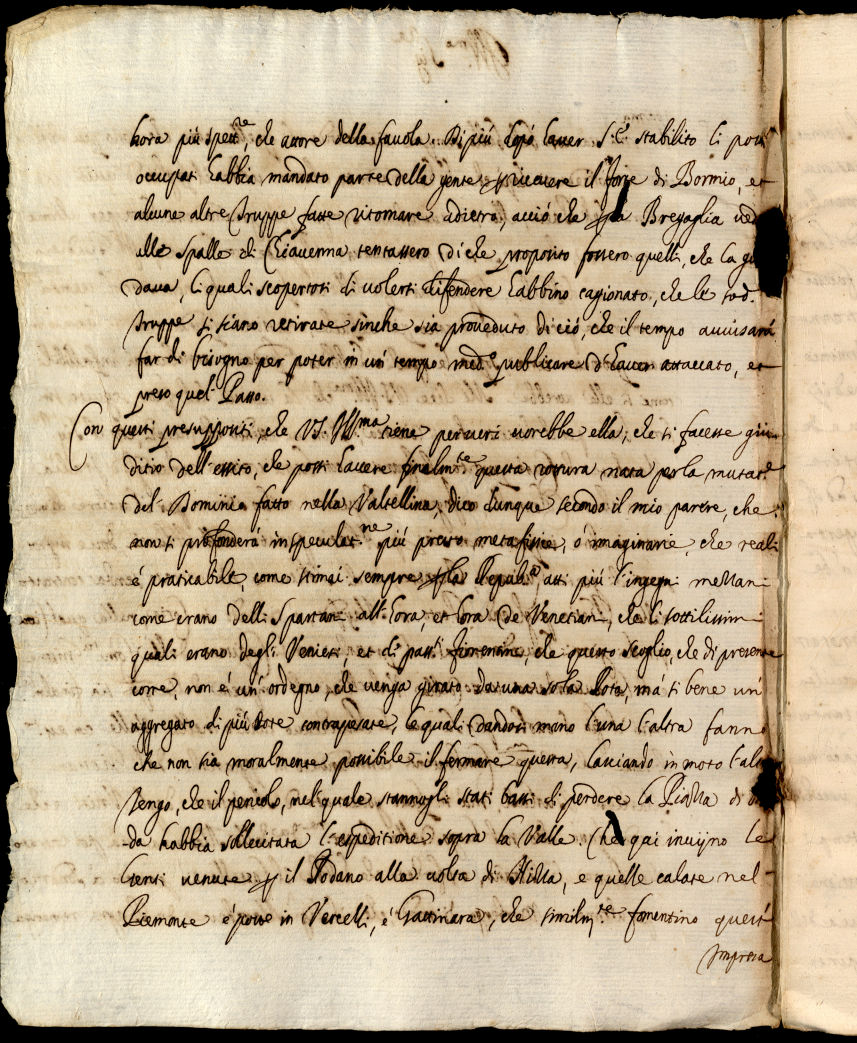 hora più spett.re, che attore della favola. Di più dopò haver S. E. stabilito li posti
occupati habbia mandato parte della gente p ricevere il forte di Bormio, et
alcune altre truppe fatte ritornare adietro, acciò che p la Bregaglia
alle spalle di Chiavenna tentassero di che proposito fossero quelli, che la
dava, li quali scopertosi di volersi difendere habbino cagionato, che le sud.
truppe si siano retirate sinche sia proveduto di ciò, che il tempo avvisarà
far di bisogno per poter in un' tempo med.o publicare d'haver attaccato, et
preso quel Passo.
Con questi presuppositi, che VS. Ill.ma tiene per veri vorebbe ella, che si facesse giu-
ditio dell'essito, che possi havere finalm.te questa rottura nata per la mutat.e
del Dominio fatto nella Valtellina, dico dunque secondo il mio parere, che
non si profonderà in speculat.ne più presto metafisice, ò imaginarie, che reali
è praticabile, come stimai sempre p la Republ.a atti più l'ingegni mezzani
come erano delli Spartani all'hora, et hora de Venetiani, che li sottilissimi
quali erano degli Ateniesi, et di pass.ti fiorentini, che questo scoglio, che di presente
corre, non è un' ordegno, che venga girato da una sola Rota, mà si bene un'
aggregato di più Rote contrapesate, le quali dandosi mano l'una l'altra fanno
che non sia moralmente possibile il fermare questa, lasciando in moto l'altre
Tengo, che il pericolo, nel quale stanno gli stati bassi di perdere la Piazza di
da habbia sollecitata l'espeditione sopra la Valle. Che qui inviino le
Genti venute p il Rodano alla volta di Nizza, e quelle calate nel
Piemonte è poste in Vercelli, è Gattinara, che similm.te fomentino quest'
Impresa